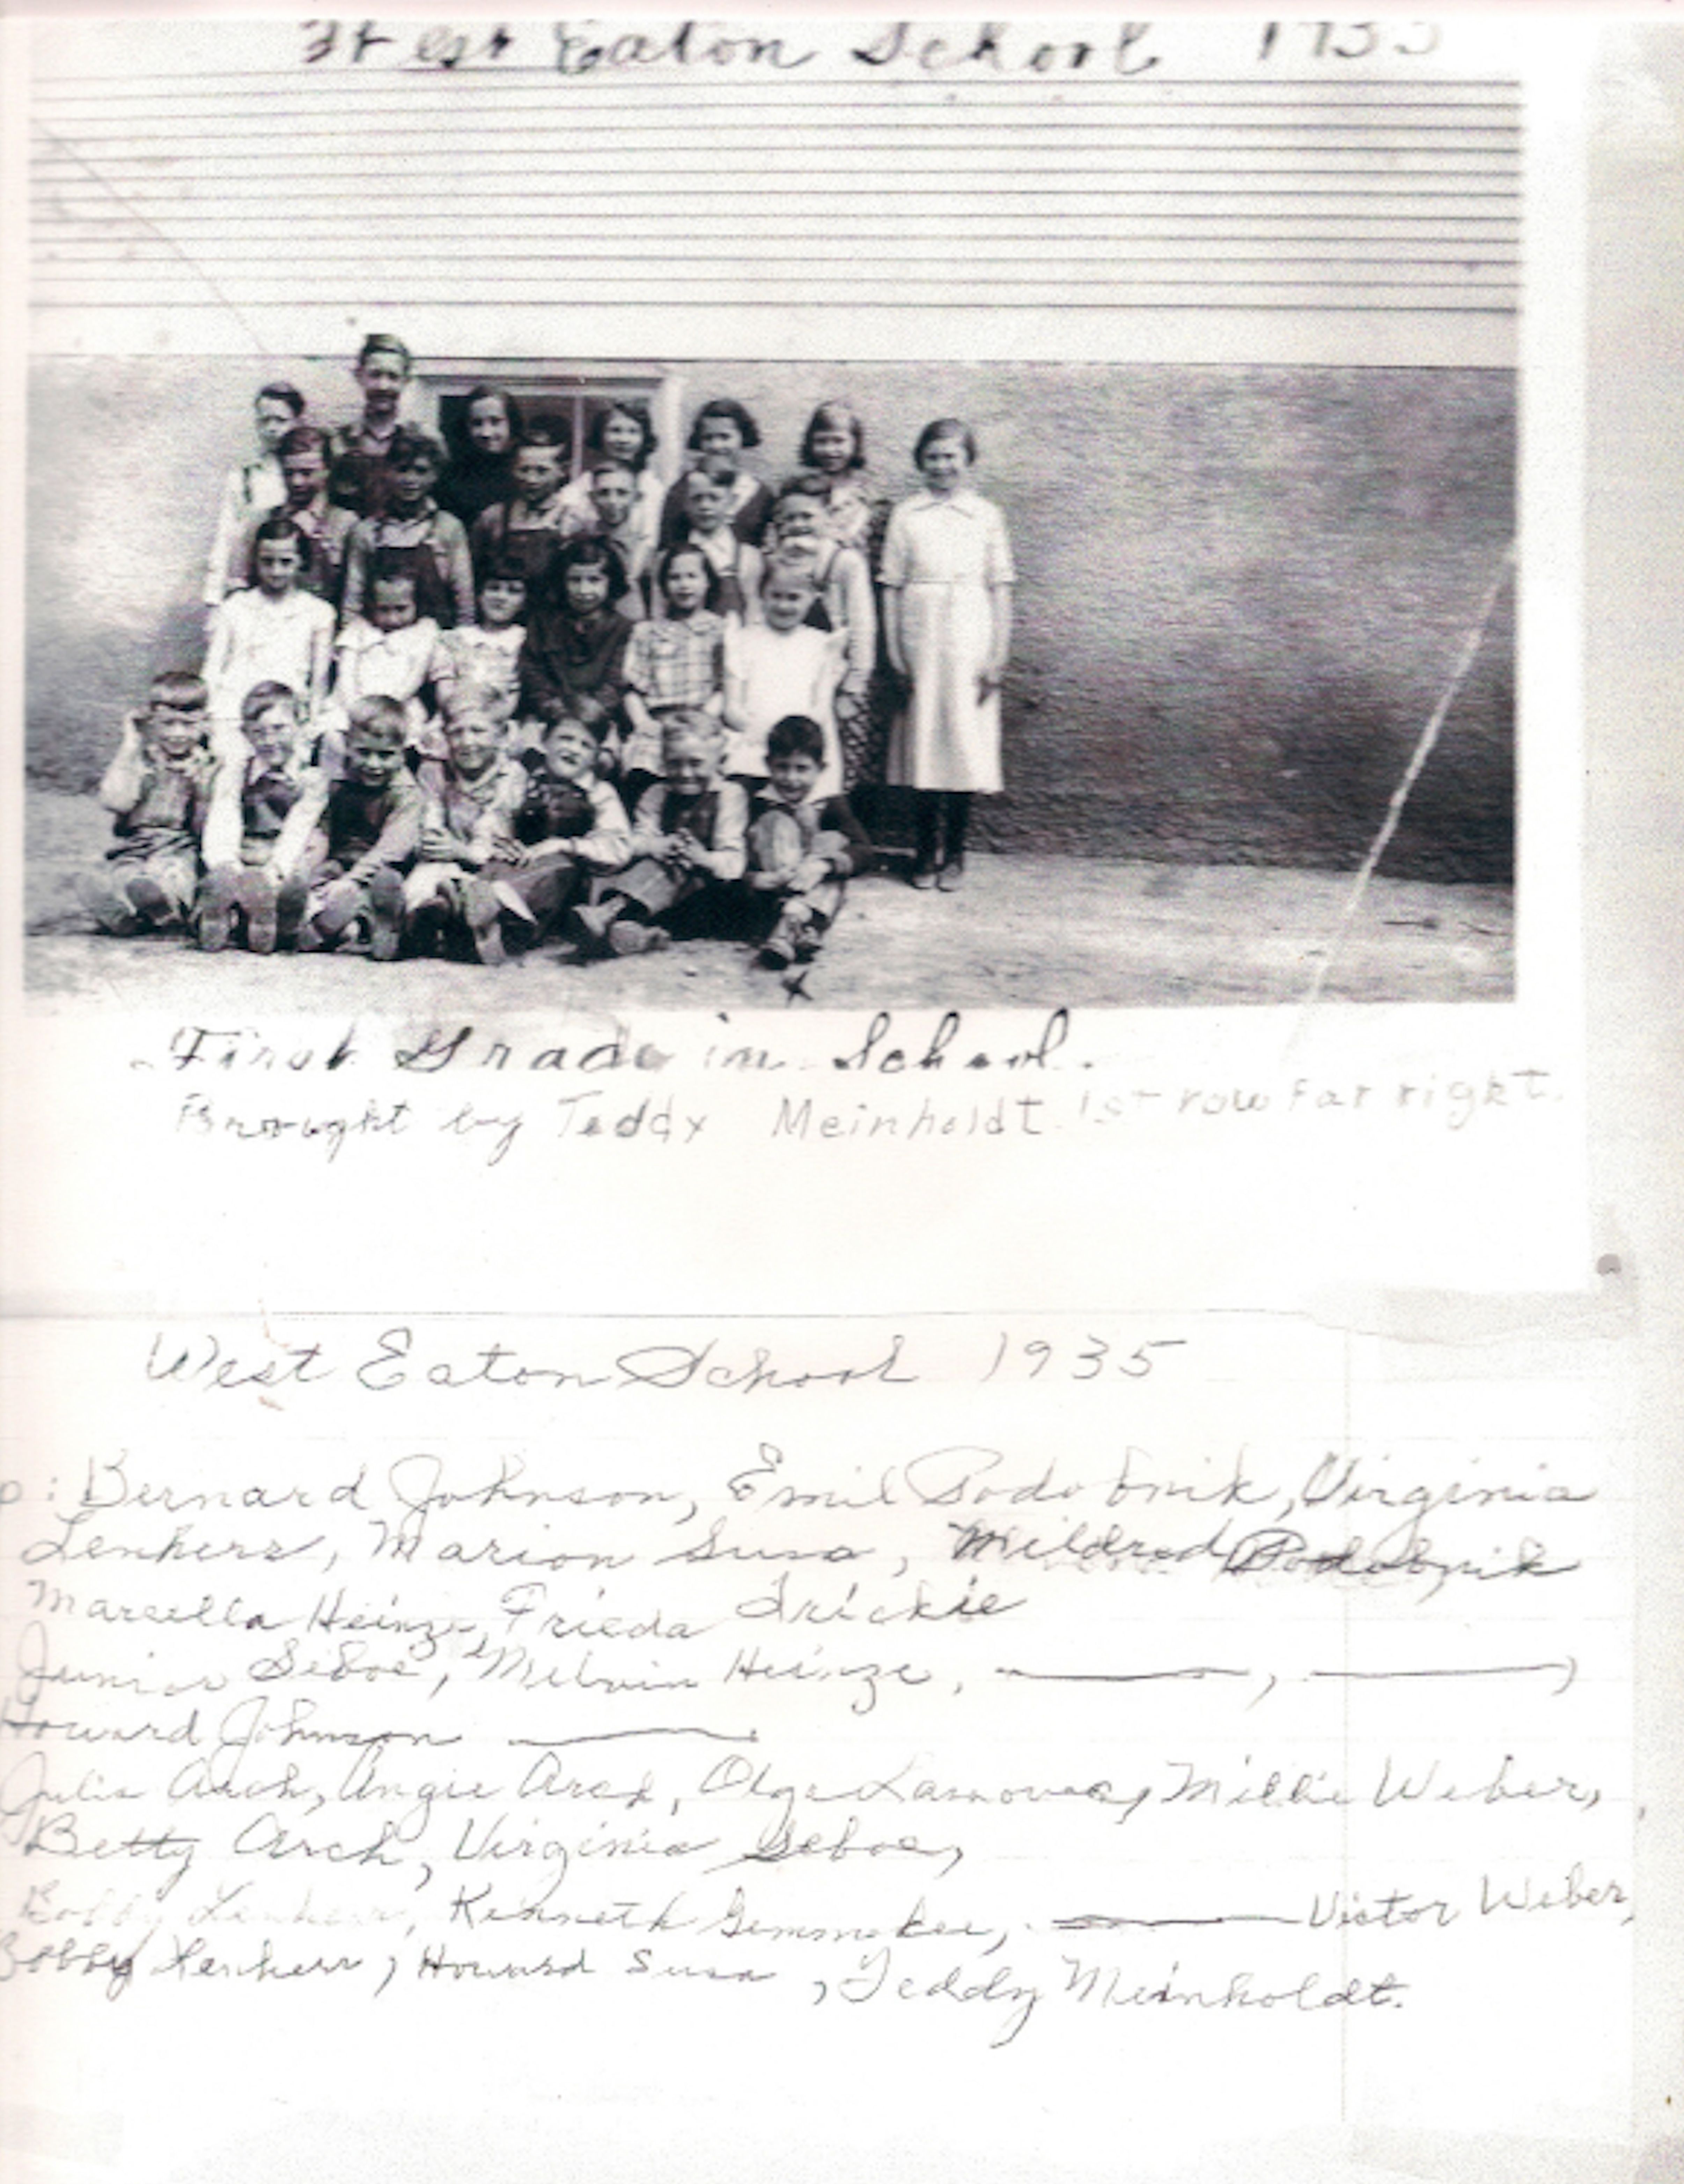 West Eaton School 1935
First Grade in School.
Brought by Teddy Meinholdt 1st row far right.
West Eaton School 1935
: Bernard Johnson, Emil Podobnik, Virginia
Lenherr, Marion Susa, Mildred Podobnik
Marcella Heinze, Frieda
Junior Seboe, Melvin Heinze, ———, ———,
Howard Johnson ———
Julia Arch, Angie Arch, Olga Millie Weber,
Betty Arch, Virginia Seboe,
Bobby Lenherr, Kenneth ——— Victor Weber,
Bobby Lenherr, Howard Susa, Teddy Meinholdt.